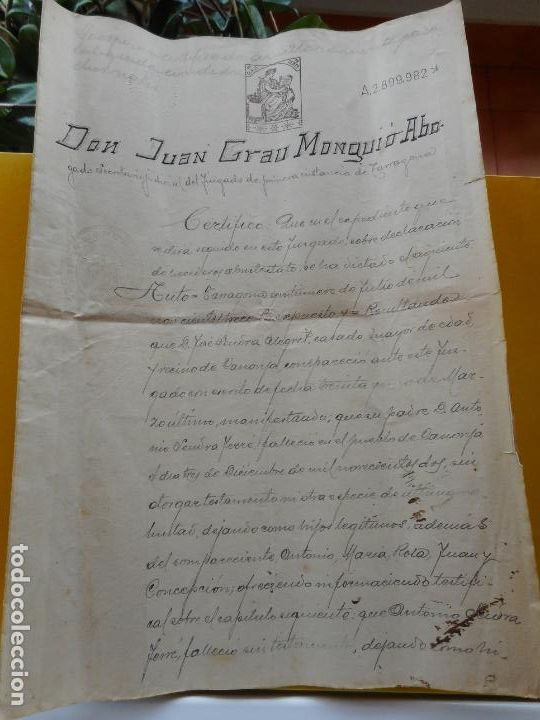 A.2.899.982
Don Juan Grau Monguió Abo-
gado Secretario judicial del Juzgado de primera instancia de Tarragona
Certifico: Que en el expediente que
se dirá seguido en este Juzgado, sobre declaración
de herederos abintestato, se ha dictado el siguiente
Auto = Tarragona veintinueve de Julio de mil
novecientos trece. Resultando
que D. José Sendra Alegret, casado, mayor de edad,
y vecino de Canonja, compareció ante este Juz-
gado con escrito de fecha treinta y uno de Mar-
zo último, manifestando; que su padre D. Anto-
nio Sendra Ferré, falleció en el pueblo de Canonja
el dia tres de Diciembre de mil novecientos dos, sin
otorgar testamento ni otra especie de última vo-
luntad, dejando como hijos legítimos, además
del compareciente, Antonio, Maria, Rosa, Juan y
Concepción; ofreciendo información testifi-
cal sobre el capítulo siguiente: que Antonio Sendra
Ferré, falleció sin testamento, dejando como hi-
todocoleccion.net